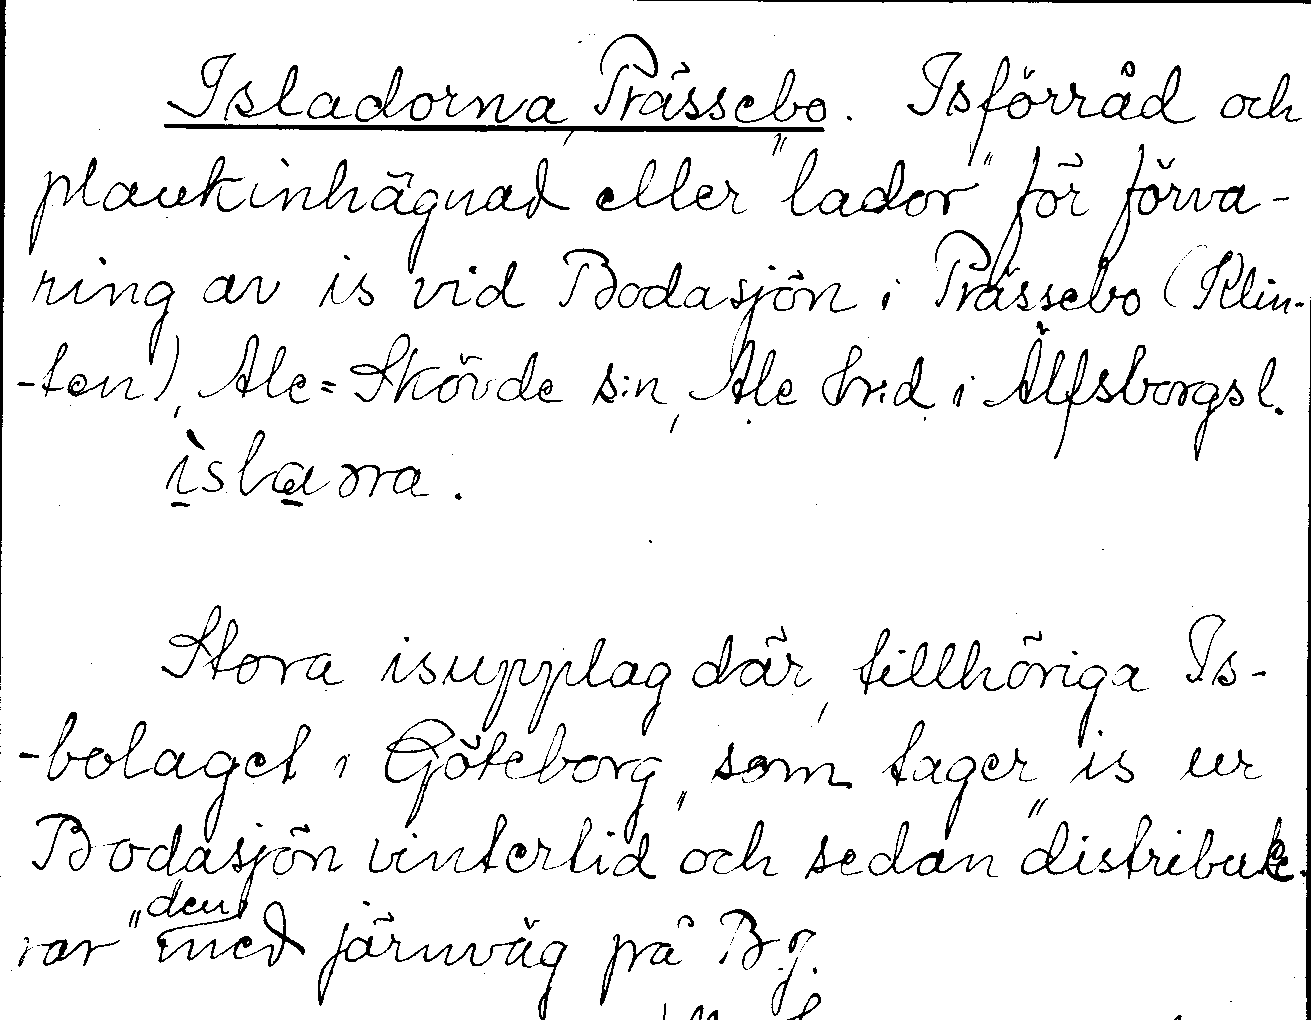 Isladorna, Prässebo. Isförråd och
plankinhägnad eller "lador" för förva-
ring av is vid Bodasjön i Prässebo (Klin-
-ten), Ale=Skövde s:n, Ale hrd i Älfsborgs l.
Stora isupplag där, tillhöriga Is-
-bolaget i Göteborg, som tager is ur
Bodasjön vintertid och sedan "distribue-
rar" den med järnväg på B.J.